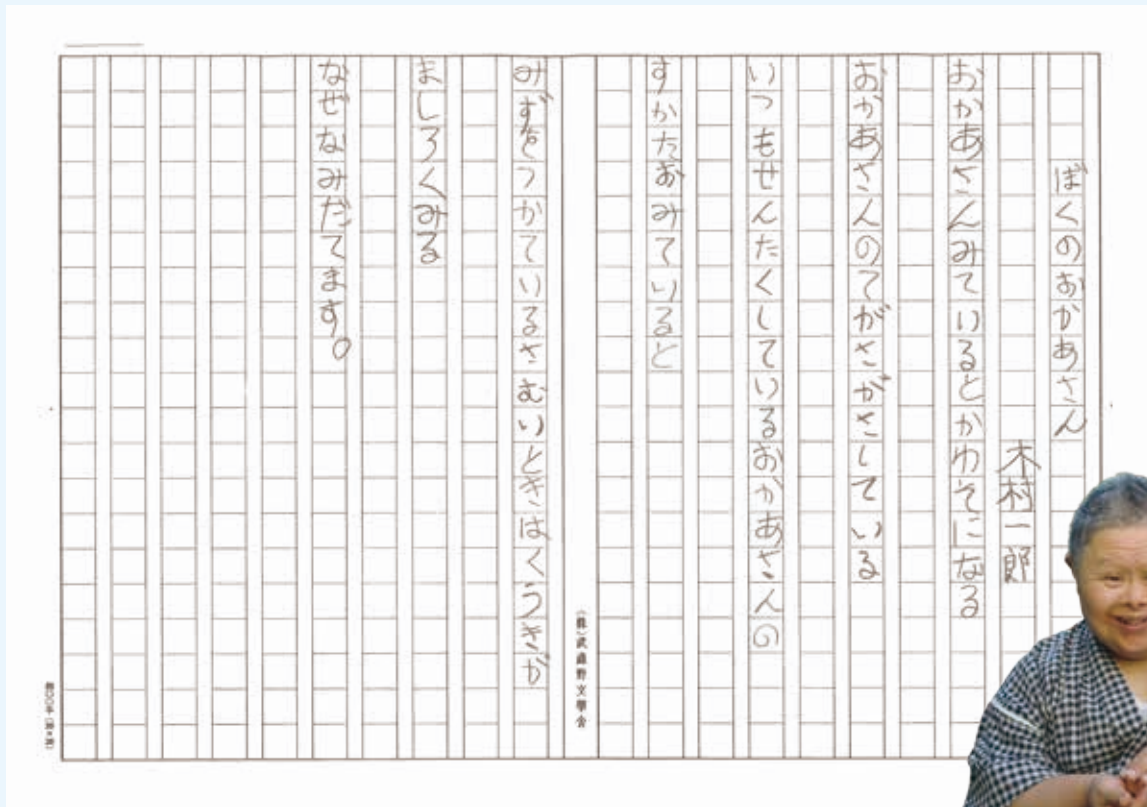 ぼくのおかあさん
木村一郎
おかあさんみているとかわそになる
おかあさんのてがさがさしている
いつもせんたくしているおかあさんの
すかたおみていると
(株)武蔵野文學舎
みずをつかているさむいときはくうきが
ましろくみる
なぜなみだてます。